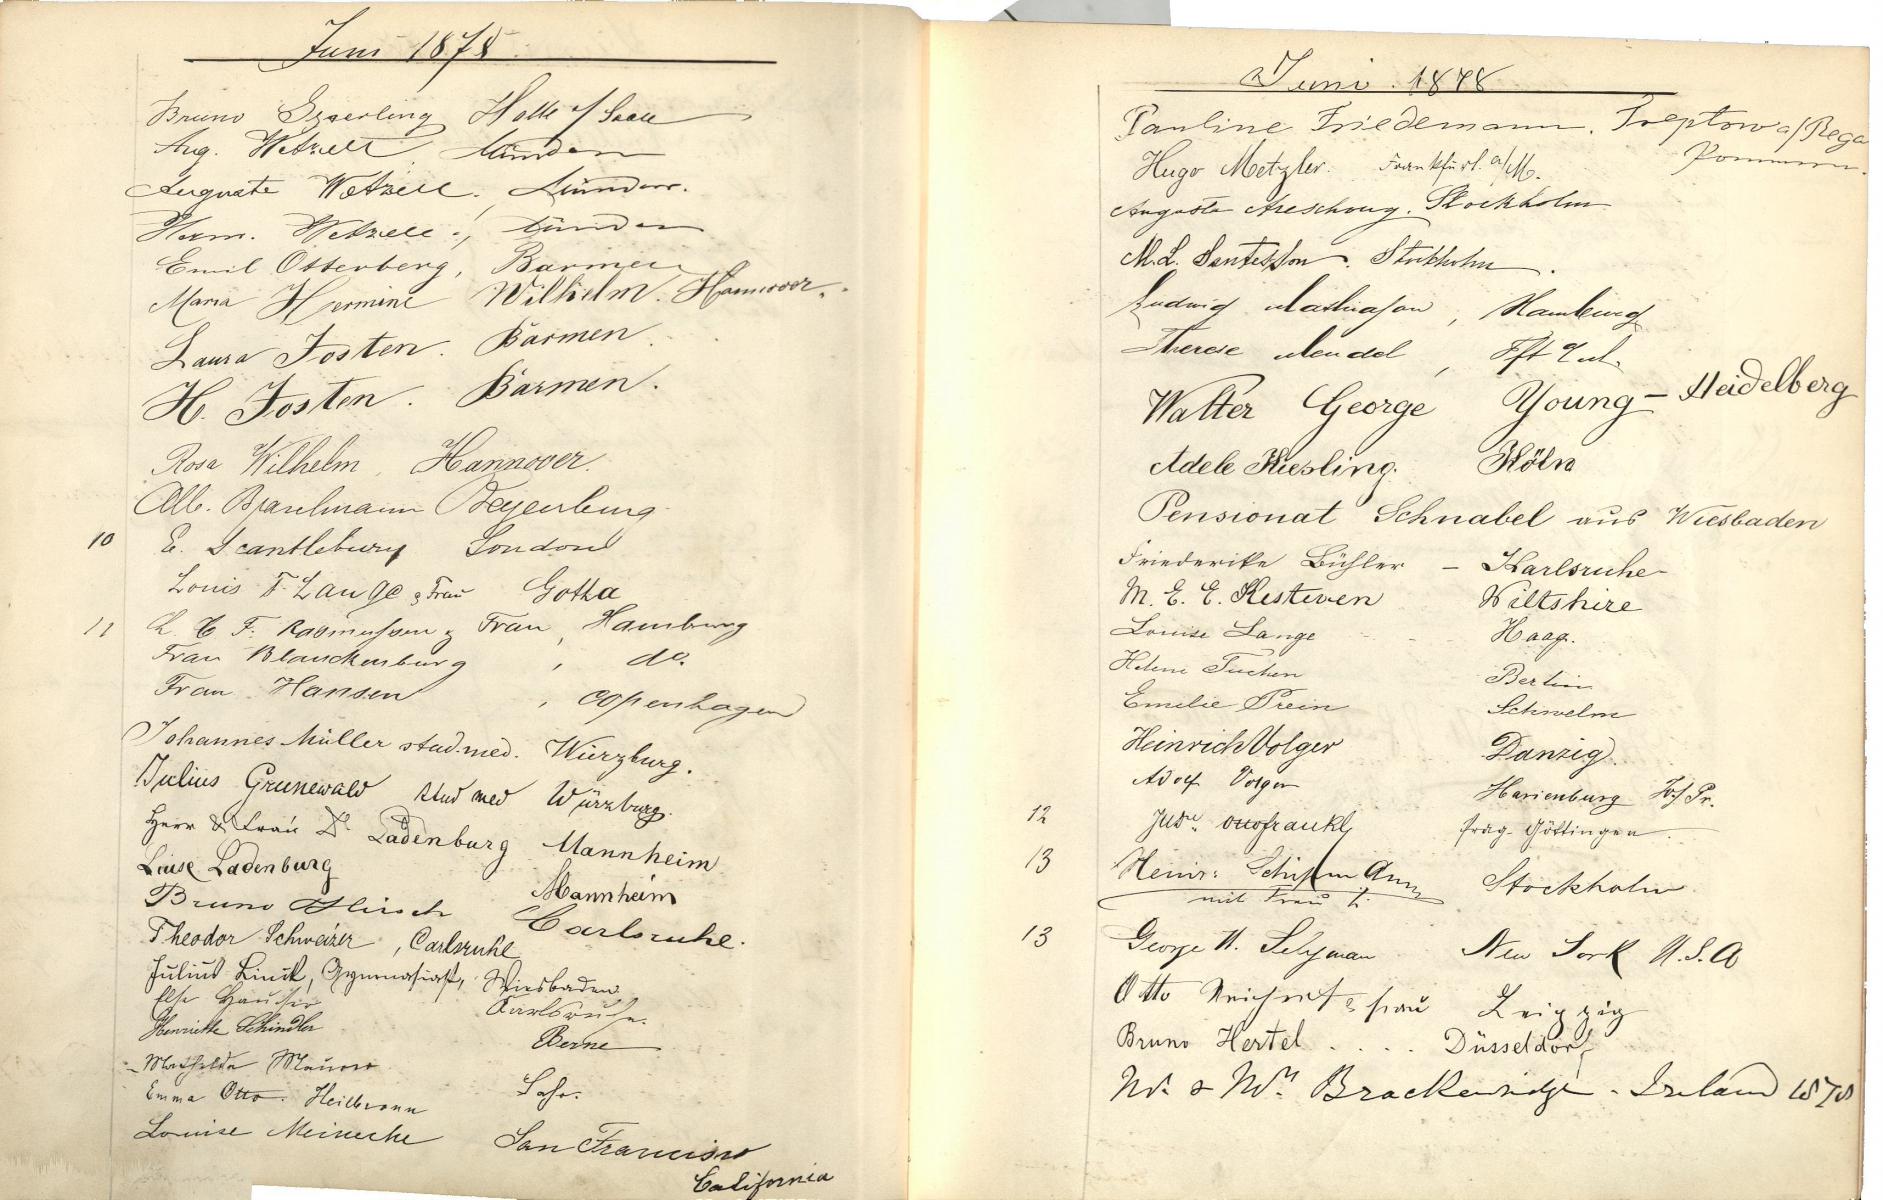 Juni 1878.
Bruno Halle a/ Saale
Aug. Wetzell Münden
Auguste Wetzell. Münden.
Herm. Wetzell., Münden
Emil Osterberg, Barmen
Maria Hermine Wilhelm. Hannover.
Laura Josten. Barmen.
H. Josten. Barmen.
Rosa Wilhelm, Hannover.
Alb. Braselmann Beyenburg.
10 E. Scantlebury London
Louis F. Lange & Frau Gotha
11 F. Rasmussen & Frau, Hamburg
Frau Blanckenburg, do.
Frau Hansen, Copenhagen
Johannes Müller stud. med. Würzburg.
Julius Grunewald stud med Würzburg.
Herr & Frau Dr Ladenburg Mannheim
Luise Ladenburg Mannheim
Bruno Hirsch Carlsruhe.
Theodor Schweizer, Carlsruhe
Julius Linck, Gymnasiast, Wiesbaden
Else Hauser Karlsruhe.
Henriette Schindler Berne
Mathilde Maurer Lahr.
Emma Otto. Heilbronn
Louise Meinecke San Francisco
California
Juni. 1878
Pauline Friedemann. Treptow a/Rega
Pommern.
Hugo Metzler. Frankfurt a/M.
Augusta Areschoug. Stockholm
M. L. Santesson. Stockholm.
Ludwig Mathiason, Hamburg
Therese Mendel, Fft a/M.
Walter George Young - Heidelberg
Adele Kiesling. Köln
Pensionat Schnabel aus Wiesbaden
Friederike Bühler - Karlsruhe
M. E. E. Kesteven Wiltshire
Louise Lange Haag.
Helene Tuchen Berlin
Emilie Prein Schwelm
Heinrich Volger Danzig.
Adolf Volger Marienburg W/Pr.
12 Otto Frankl, Prag-Göttingen.
13 Heinr: Schumann Stockholm
mit Frau
13 George W. Seligman New York U.S.A
Otto & Frau Leipzig
Bruno Hertel .... Düsseldorf
Mr. & Mrs. Brackenridge - Ireland 1878